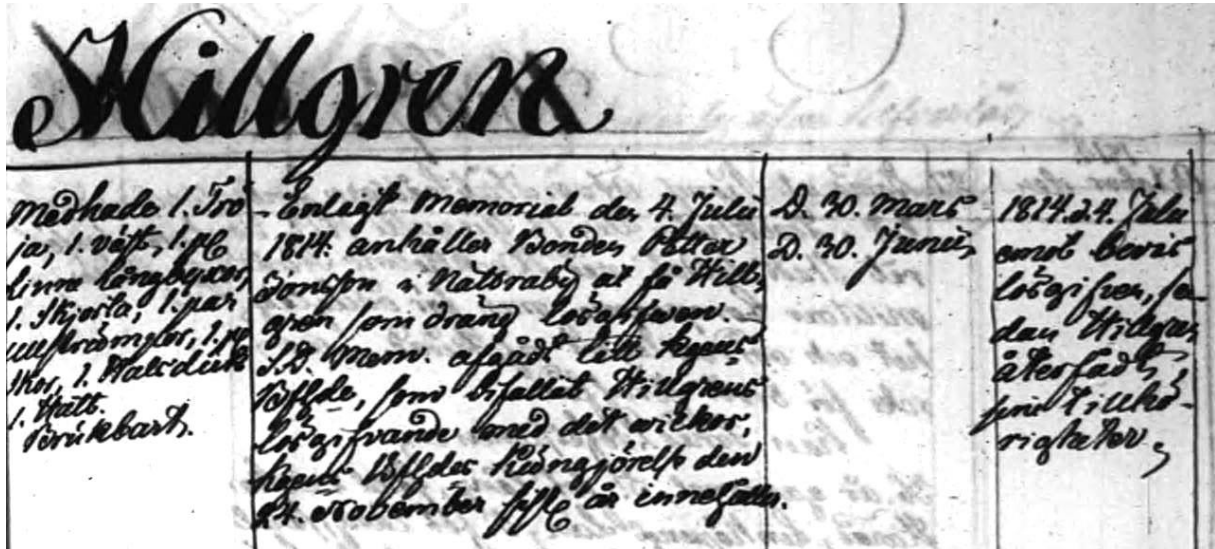 Hillgren
Medhade 1. Trö
ja, 1. väst, 1. pr
linne långbyxor,
1. Skjorta, 1. par
ullstrumpor, 1. pr
skor, 1. Halsduk
1. Hatt.
Brukbart.
Enligt Memorial den 4. Julii
1814. anhåller Bonden Petter
Jonsson i Nättraby at få Hill,
gren som dräng lösgifwen.
S.D. Mem. afgådt till Kgens
Bfhde, som bifallit Hillgrens
lösgifvande med det wilkor,
Kgens Bfhdes Kungjörelse den
24. November sistl. år innefattar.
D. 30. Mars
D. 30. Junii,
1814. d. 4. Julii
emot bevis
lösgifven, se-
dan Hillgren
återfådt
sine Tillhö-
righeter,